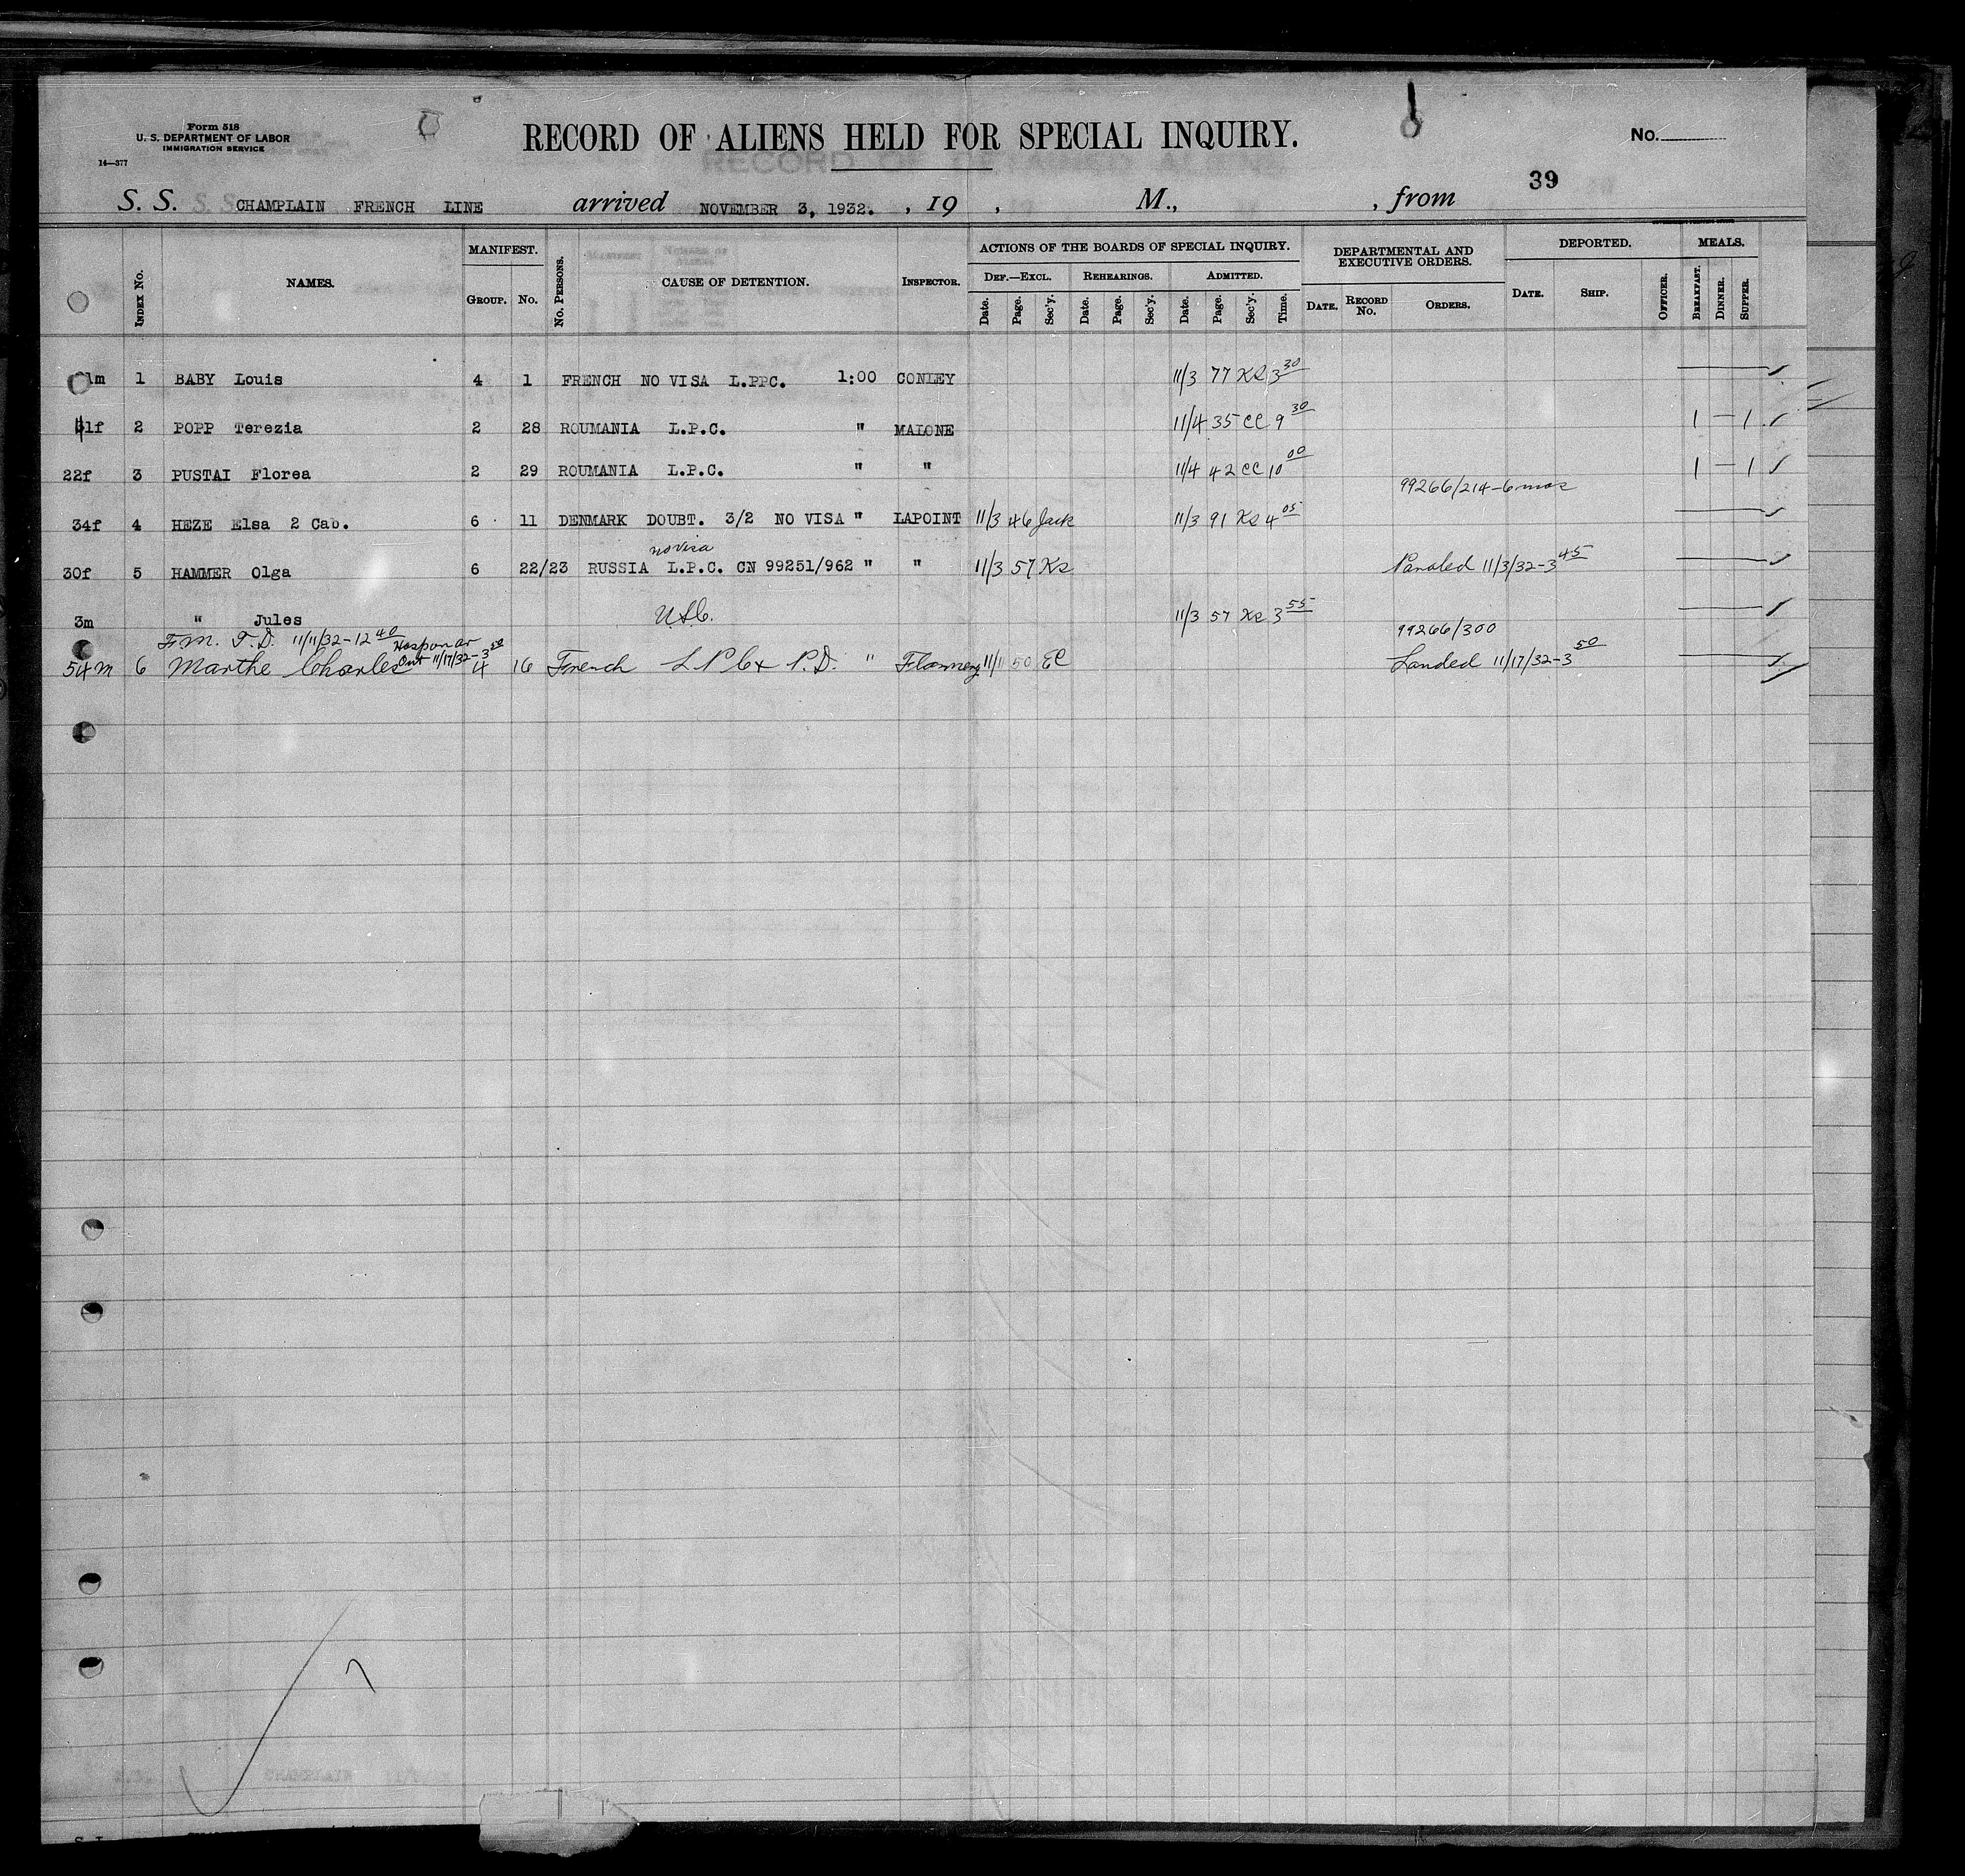 Form 518
U. S. DEPARTMENT OF LABOR
IMMIGRATION SERVICE
14—377
RECORD OF ALIENS HELD FOR SPECIAL INQUIRY.
No.
39
S. S. CHAMPLAIN FRENCH LINE arrived NOVEMBER 3, 1932. , 19 , M., , from
INDEX No. NAMES. MANIFEST. GROUP. No. No. PERSONS. CAUSE OF DETENTION. INSPECTOR. ACTIONS OF THE BOARDS OF SPECIAL INQUIRY. DEF.—EXCL. Date. Page. Sec'y. REHEARINGS. Date. Page. Sec'y. ADMITTED. Date. Page. Sec'y. Time. DEPARTMENTAL AND EXECUTIVE ORDERS. DATE. RECORD No. ORDERS. DEPORTED. DATE. SHIP. OFFICER. MEALS. BREAKFAST. DINNER. SUPPER.
1m 1 BABY Louis 4 1 FRENCH NO VISA L.PPC. 1:00 CONLEY 11/3 77 KS 3 30
1f 2 POPP Terezia 2 28 ROUMANIA L.P.C. " MALONE 11/4 35 CC 9 30 1 — 1
22f 3 PUSTAI Florea 2 29 ROUMANIA L.P.C. " " 11/4 42 CC 10 00 1 — 1
99266/214-6 mos
34f 4 HEZE Elsa 2 Cab. 6 11 DENMARK DOUBT. 3/2 NO VISA " LAPOINT 11/3 46 Jack 11/3 91 KS 4 05
no visa
30f 5 HAMMER Olga 6 22/23 RUSSIA L.P.C. CN 99251/962 " " 11/3 57 KS Paroled 11/3/32-3 45
3m " Jules USC. 11/3 57 KS 3 55
99266/300
F.M. T.D. 11/11/32-12 40 Hosp on ar
Out 11/17/32-3 50
54m 6 Marthe Charles 4 16 French L P C + P.D. " Flannery 11/11 50 EC Landed 11/17/32-3 50
CHAMPLAIN